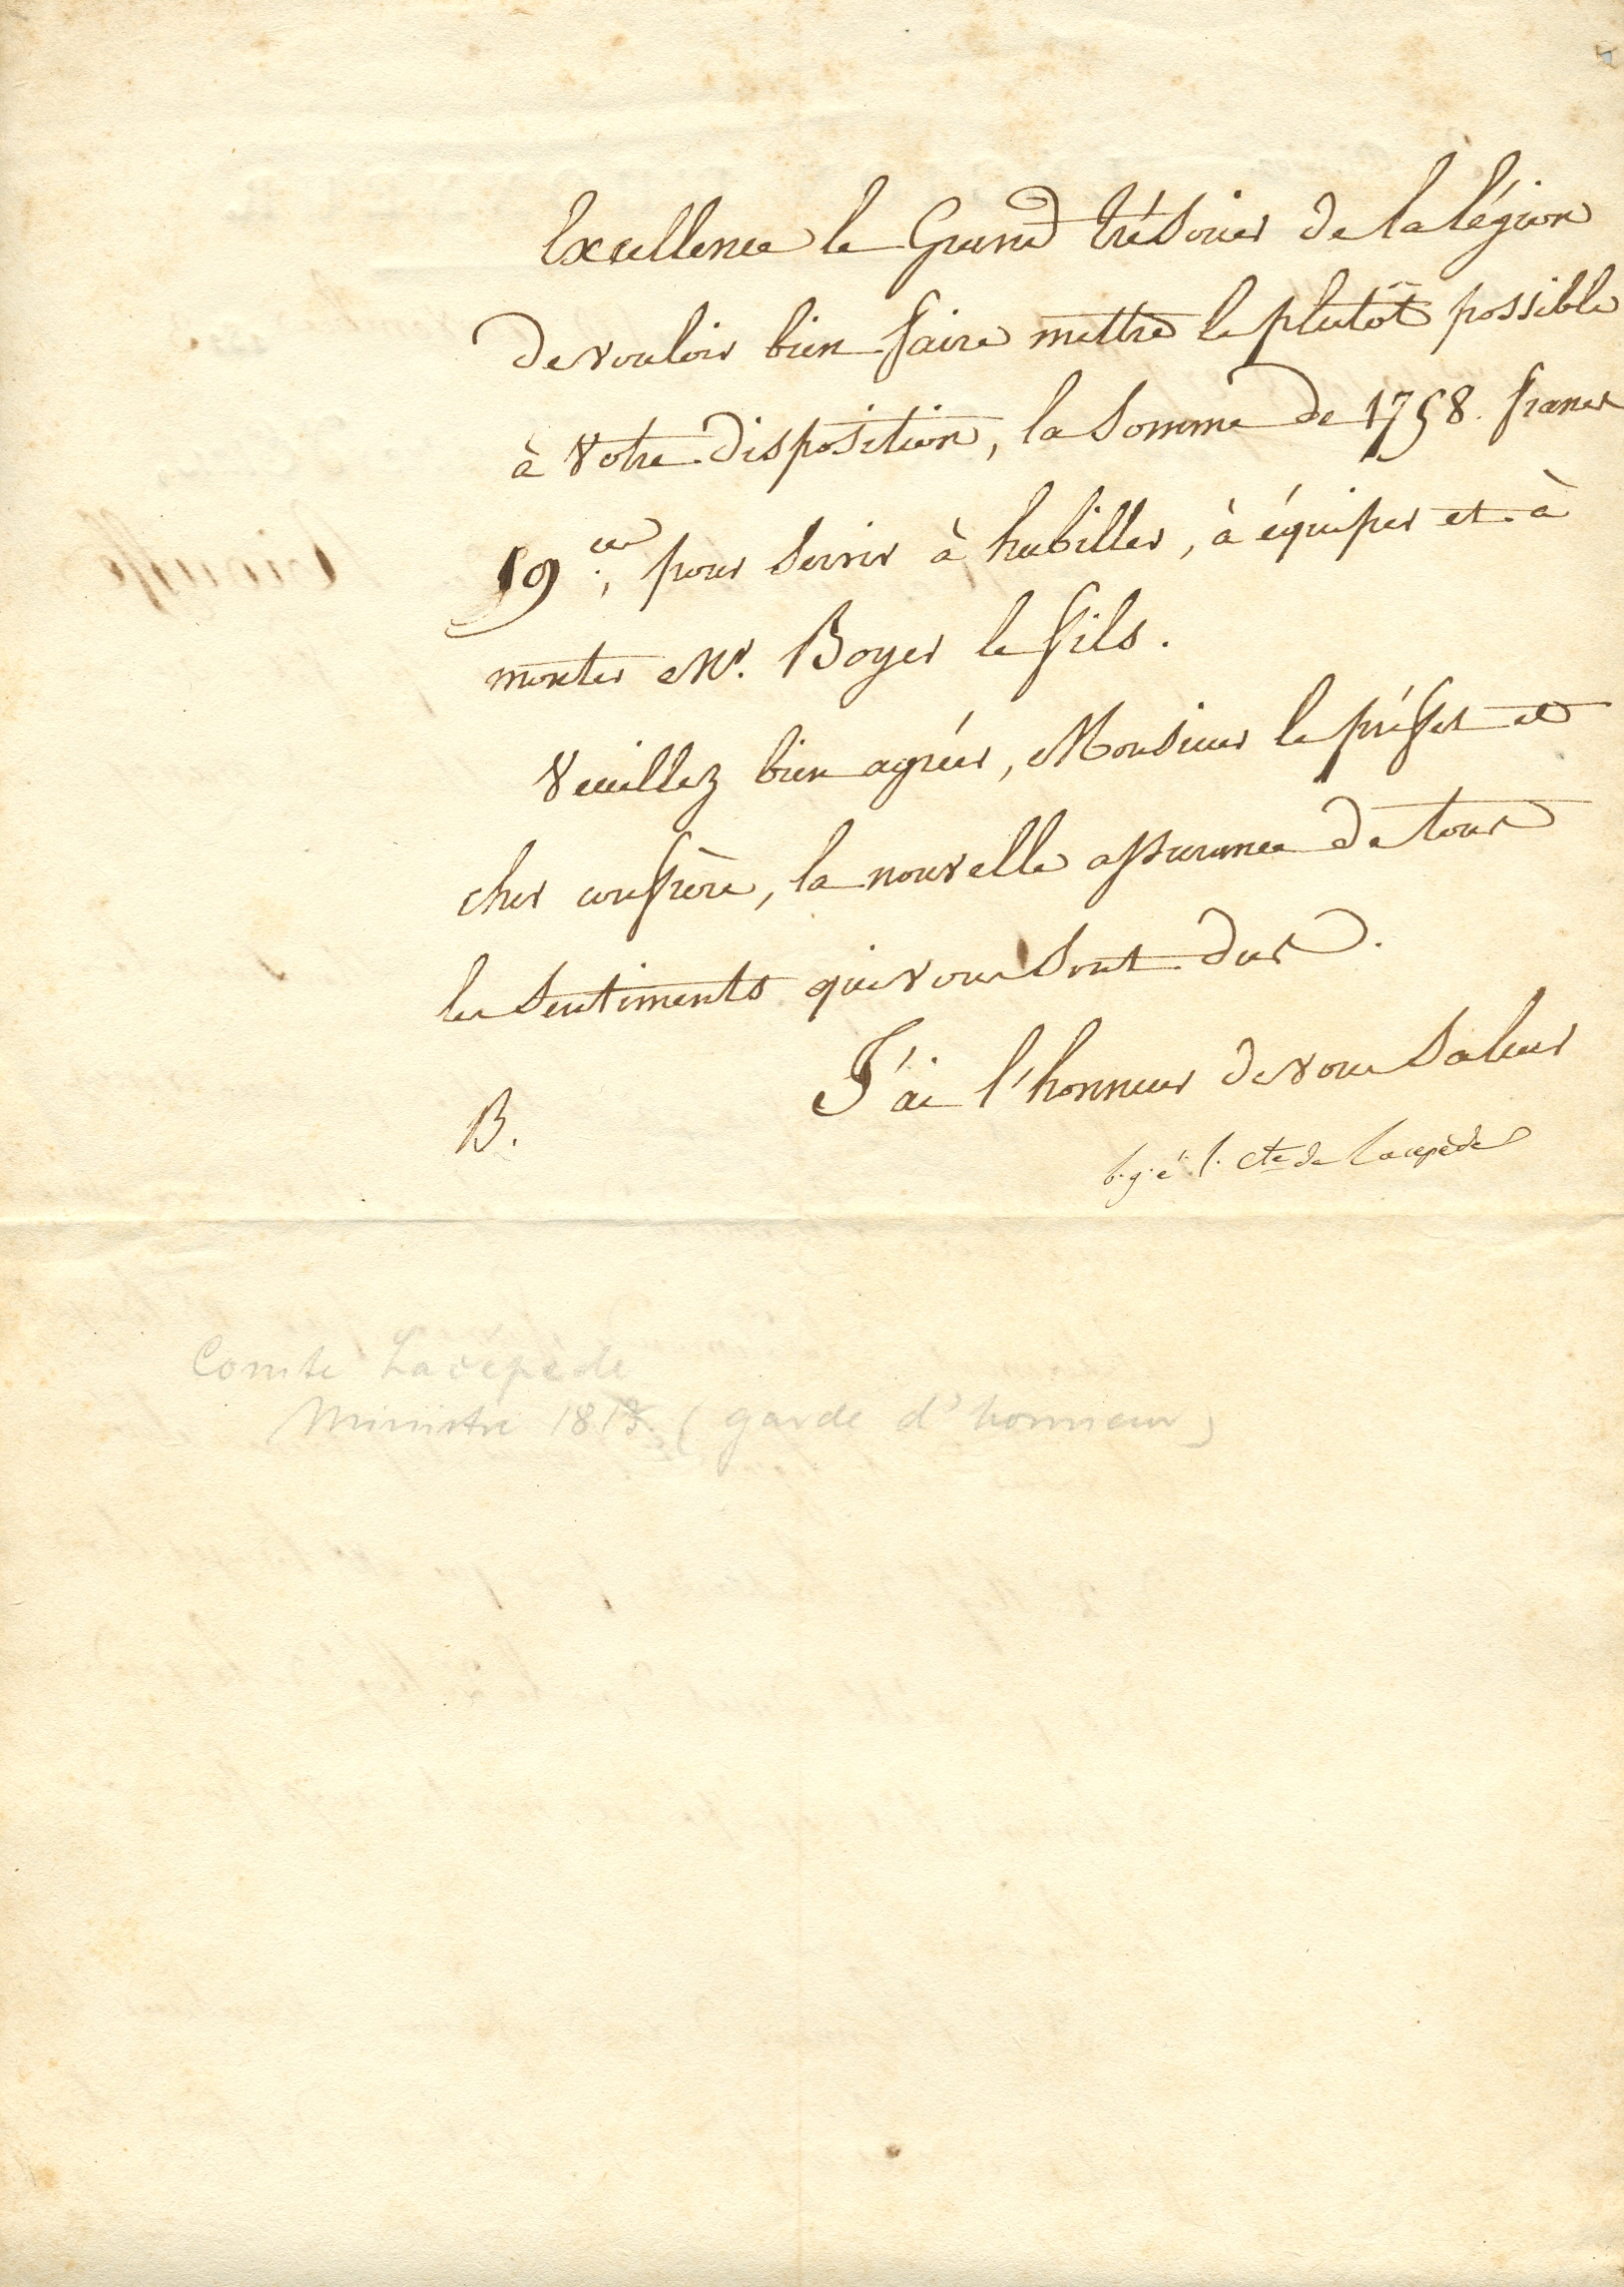 Excellence le Grand trésorier de la légion
de vouloir bien faire mettre le plutôt possible
à votre disposition, la somme de 1758. francs
59 ces, pour servir à habiller, à équiper et à
monter Mr. Boyer le fils.
Veuillez bien agréer, Monsieur le préfet et
cher confrère, la nouvelle assurance de tous
les sentiments qui vous sont dus.
J'ai l'honneur de vous saluer
B.
b. g. é. l. cte de Lacepède
Comte Lacépède
Ministre 1813. (garde d'honneur)